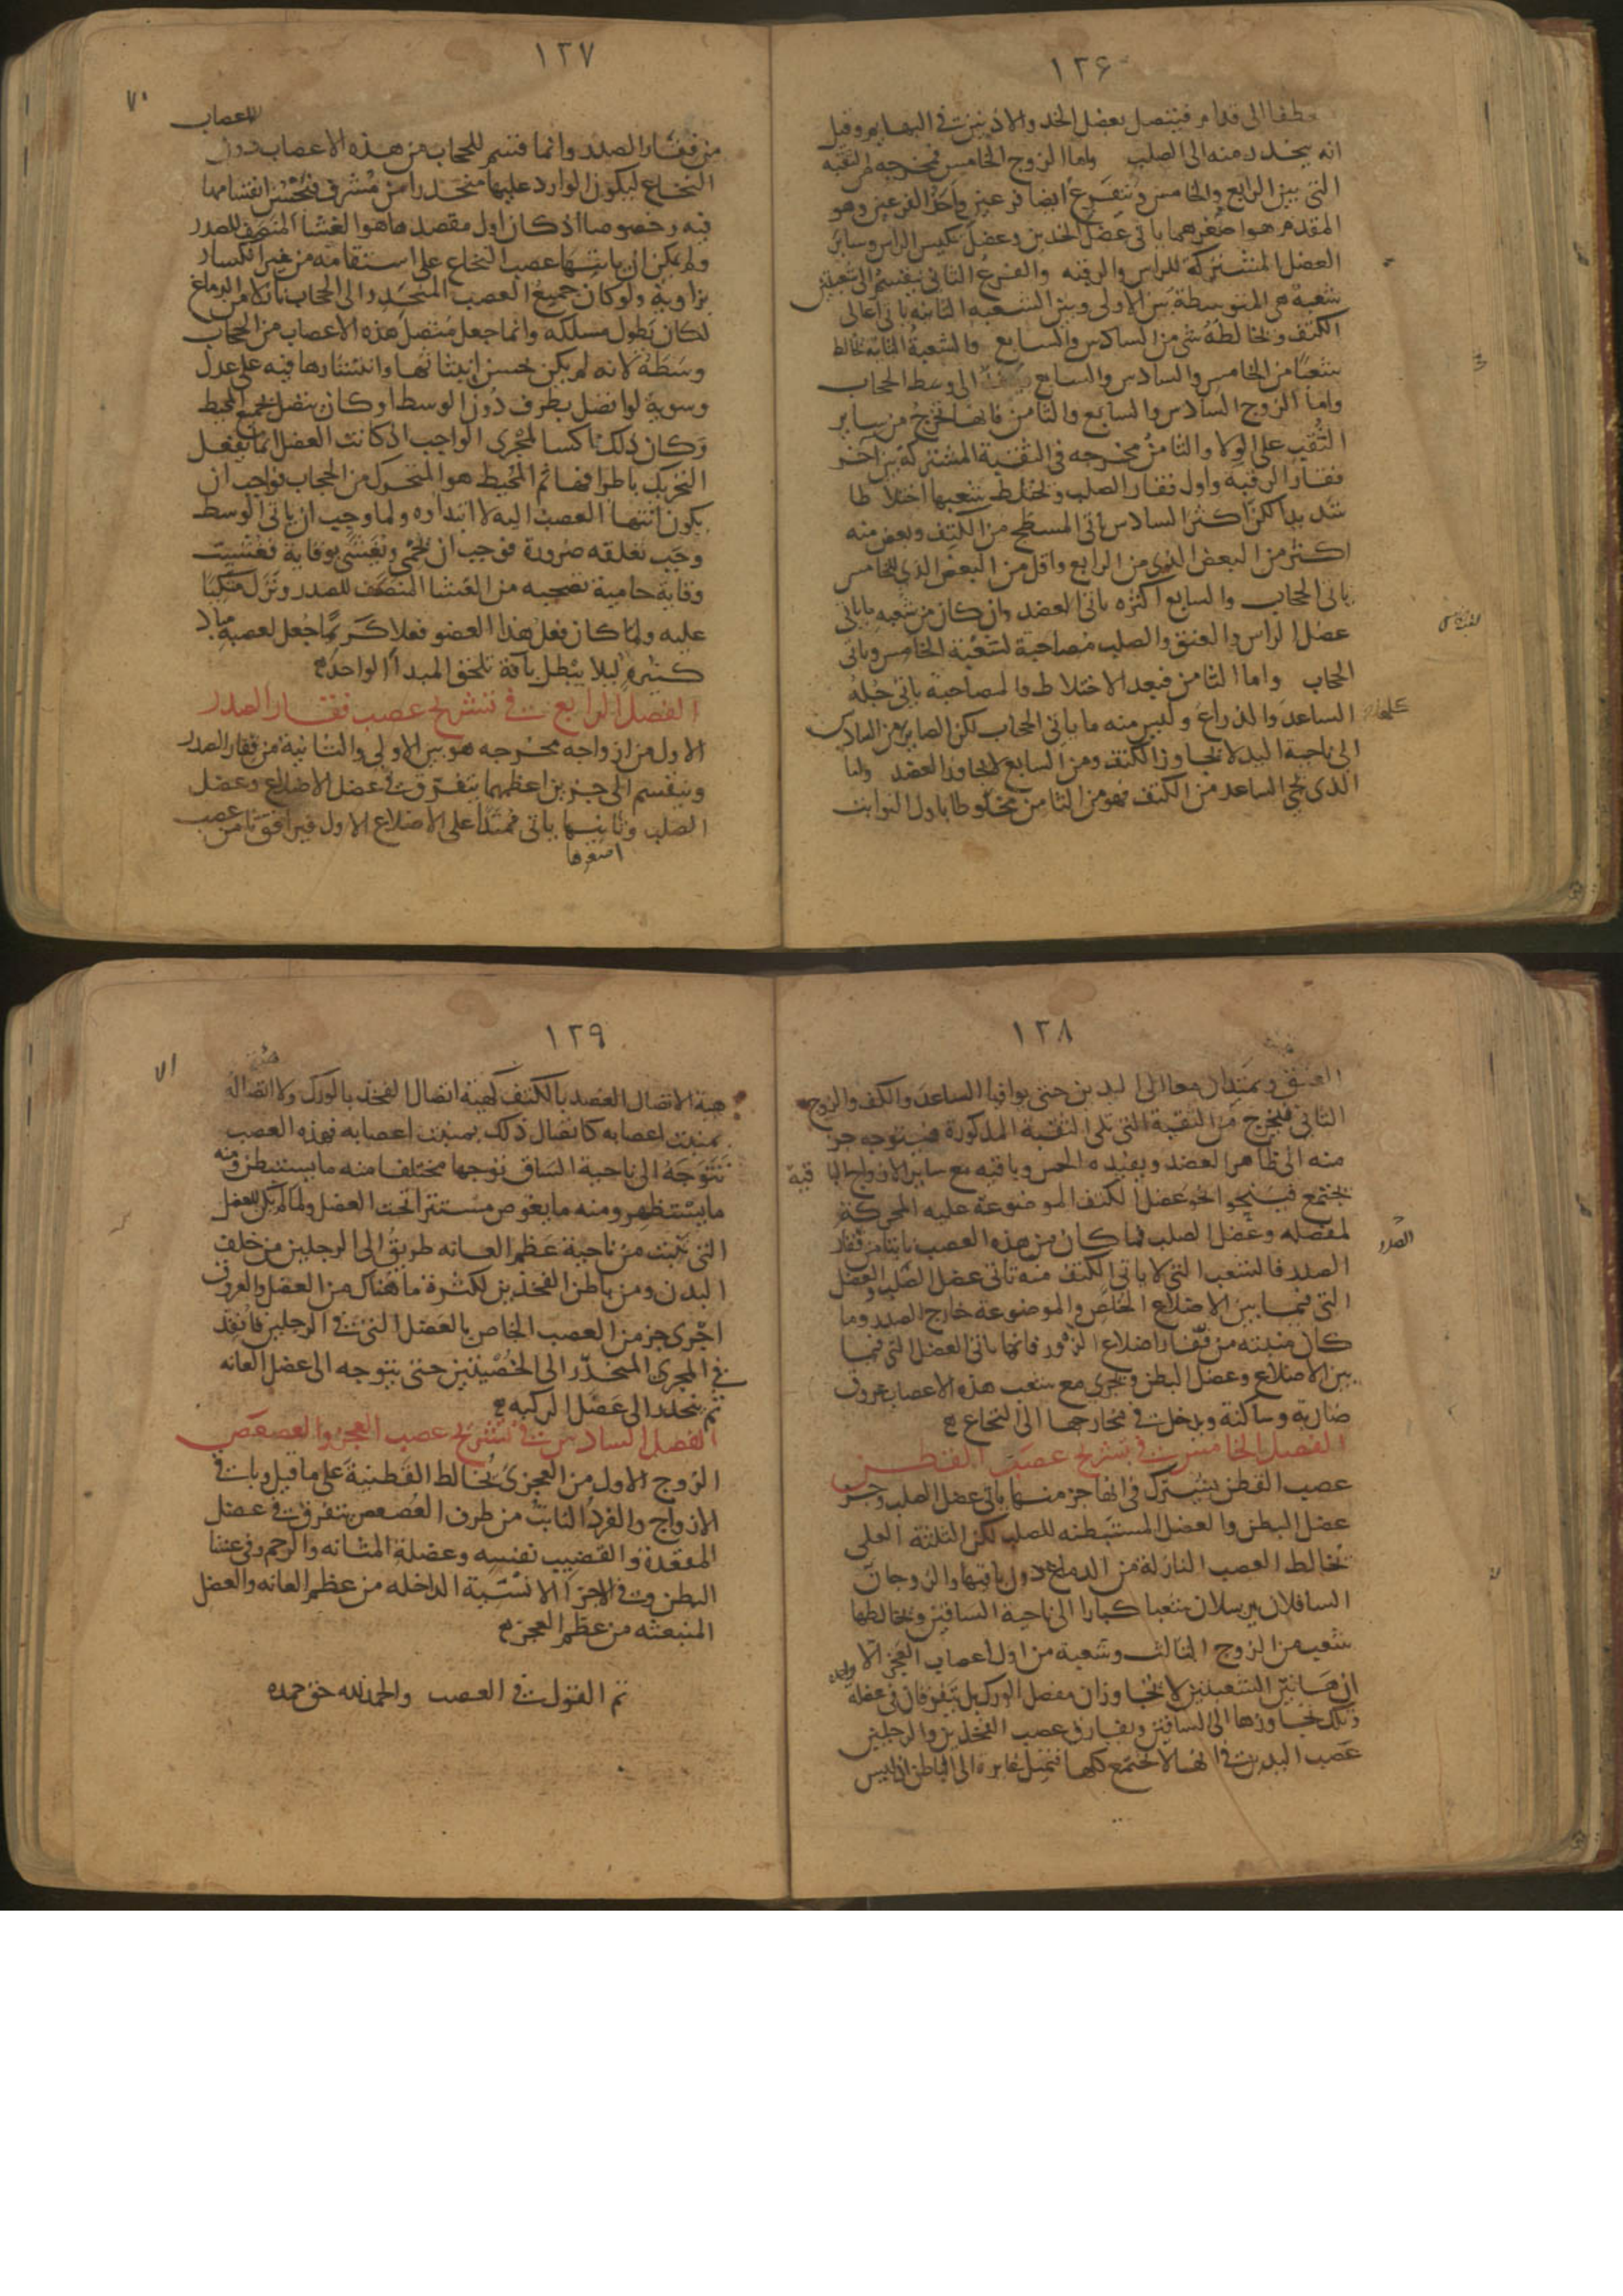 ١٢٦
عطفا الى قدام فيتصل بعضل الخد والاذنين في البهايم وقيل
انه ينحدر منه الى الصلب واما الزوج الخامس فمخرجه من الثقبة
التي بين الرابع والخامس ويتفرع ايضا فرعين واحد الفرعين وهو
المقدم هو اصغرهما ياتي عضل الخدين وعضل تنكيس الراس وساير
العضل المشتركة للراس والرقبه والفرع الثاني ينقسم الى شعبتين
شعبة هي المتوسطة بين الاولى وبين الشعبه الثانيه ياتي اعالي
الكتف ويخالطه شي من السادس والسابع والشعبة الثانية تخالط
شعبا من الخامس والسادس والسابع الى وسط الحجاب
واما الزوج السادس والسابع والثامن فانها تخرج من ساير
الثقب على الولا والثامن مخرجه في الثقبة المشتركة بين اخر
فقار الرقبة واول فقار الصلب ويختلط شعبها اختلاطا
شديدا لكن اكثر السادس ياتي المسطح من الكتف وبعض منه
اكثر من البعض الذي من الرابع واقل من البعض الذي للخامس
ياتي الحجاب والسابع اكثره ياتي العضد وان كان من شعبه ما ياتي
عضل الراس والعنق والصلب مصاحبة لشعبة الخامس وياتي
الحجاب واما الثامن فبعد الاختلاط والمصاحبة ياتي جلد
الساعد والذراع وليس منه ما ياتي الحجاب لكن الصاير من السادس
الى ناحية اليد لا يتجاوز الكتف ومن السابع لا يجاوز العضد واما
الذي يجي الساعد من الكتف فهو من الثامن مخلوطا باول النوابت
١٢٧
٧٠
من فقار الصدر وانما قسم للحجاب من هذه الاعصاب دون
الاعصاب
النخاع ليكون الوارد عليها منحدرا من مشرف فيحسن انقسامها
فيه وخصوصا اذ كان اول مقصدها هو الغشا المنصف للصدر
ولم يكن ان ياتيها عصب النخاع على استقامة من غير انكسار
بزاوية ولو كان جميع العصب المنحدر الى الحجاب نازلا من الدماغ
لكان يطول مسلكه وانما جعل متصل هذه الاعصاب من الحجاب
وسطه لانه لم يكن يحسن انبثاثها وانتشارها فيه على عدل
وسوية لو اتصل بطرف دون الوسط او كان يتصل بجميع المحيط
وكان ذلك ناكسا لمجرى الواجب اذ كانت العضل انما يفعل
التحريك باطرافها ثم المحيط هو المتحرك من الحجاب فواجب ان
يكون انتهاء العصب اليه لا ابتداوه ولما وجب ان ياتي الوسط
وجب تعلقه ضرورة فوجب ان يحمى ويغشى بوقاية فغشيت
وقاية حامية تصحبه من الغشا المنصف للصدر ونزل متكيا
عليه ولما كان فعل هذا العضو فعلا كريما جعل لعصبه مباد
كثيرة ليلا يبطل بافة تلحق المبدا الواحد
الفصل الرابع في تشريح عصب فقار الصدر
الاول من ازواجه مخرجه هو بين الاولى والثانية من فقار الصدر
وينقسم الى جزين اعظمهما يتفرق في عضل الاضلاع وعضل
الصلب وثانيهما ياتي ممتدا على الاضلاع الاول فيرافق ثامن عصب
اصغرها
١٢٨
العنق ويمتدان معا الى اليدين حتى يوافيا الساعد والكف والزوج
الثاني فيخرج من الثقبة التي تلي الثقبة المذكورة فيتوجه جز
منه الى ظاهر العضد ويفيده الحس وباقيه مع ساير الازواج الباقية
يجتمع فينحو نحو عضل الكتف الموضوعة عليه المحركة
لمفصله وعضل الصلب فما كان من هذه العصب نابتا من فقار
الصدر
الصدر فالشعب التي لا ياتي الكتف منه تاتي عضل الصلب والعضل
التي فيما بين الاضلاع الخلص والموضوعة خارج الصدر وما
كان منبته من فقار اضلاع الزور فانها ياتي العضل التي فيما
بين الاضلاع وعضل البطن ويجري مع شعب هذه الاعصاب عروق
ضاربة وساكنة ويدخل في مخارجها الى النخاع
الفصل الخامس في تشريح عصب القطن
عصب القطن يشترك في انها جز منها ياتي عضل الصلب وجز
عضل البطن والعضل المستبطنه للصلب لكن الثلثة العلى
يخالط العصب النازلة من الدماغ دون باقيها والزوجان
السافلان يرسلان شعبا كبارا الى ناحية الساقين ويخالطها
شعب من الزوج الثالث وشعبة من اول اعصاب العجز الا
ان هاتين الشعبتين لا يتجاوزان مفصل الورك بل يتفرقان في عضله
وتلك تجاوزها الى الساقين ويفارق عصب الفخذين والرجلين
عصب اليدين في انها لا تجتمع كلها فتميل غايرة الى الباطن اذ ليس
١٢٩
٧١
هيئة الاتصال العضد بالكتف كهيئة اتصال الفخذ بالورك ولا اتصاله
بمنبت اعصابه كاتصال ذلك بمنبت اعصابه فهذه العصب
تتوجه الى ناحية الساق توجها مختلفا منه ما يستبطن ومنه
ما يستظهر ومنه ما يغوص مستترا تحت العضل ولما لم يكن للعضل
التي تنبت من ناحية عظم العانه طريق الى الرجلين من خلف
البدن ومن باطن الفخذين لكثرة ما هناك من العضل والعروق
اجرى جز من العصب الخاص بالعضل التي في الرجلين فانفذ
في المجرى المنحدر الى الخصيتين حتى يتوجه الى عضل العانه
ثم ينحدر الى عضل الركبه
الفصل السادس في تشريح عصب العجز والعصعص
الزوج الاول من العجزي يخالط القطنية على ما قيل وباقي
الازواج والفرد النابت من طرف العصعص يتفرق في عضل
المقعدة والقضيب نفسه وعضلة المثانه والرحم وفي غشا
البطن وفي الاجزا الانسية الداخله من عظم العانه والعضل
المنبعثه من عظم العجز
تم القول في العصب والحمد لله حق حمده